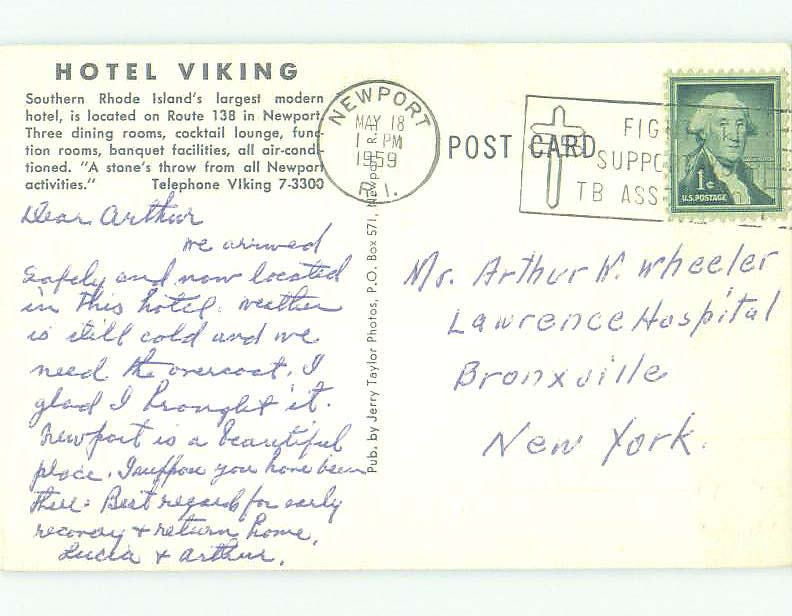 HOTEL VIKING
Southern Rhode Island's largest modern
hotel, is located on Route 138 in Newport.
Three dining rooms, cocktail lounge, func-
tion rooms, banquet facilities, all air-condi-
tioned. "A stone's throw from all Newport
activities." Telephone VIking 7-3300
Dear Arthur
We arrived
safely and now located
in this hotel. weather
is still cold and we
need the overcoat. I
glad I brought it.
Newport is a beautiful
place. I suppose you have been
there. Best regards for early
recovery + return home.
Lucia + Arthur.
Pub. by Jerry Taylor Photos, P.O. Box 571, Newport, R.I.
NEWPORT
MAY 18
1 - PM
1959
R. I.
POST CARD
FIG
SUPPO
TB ASS
1¢
U.S. POSTAGE
Mr. Arthur W. Wheeler
Lawrence Hospital
Bronxville
New York.